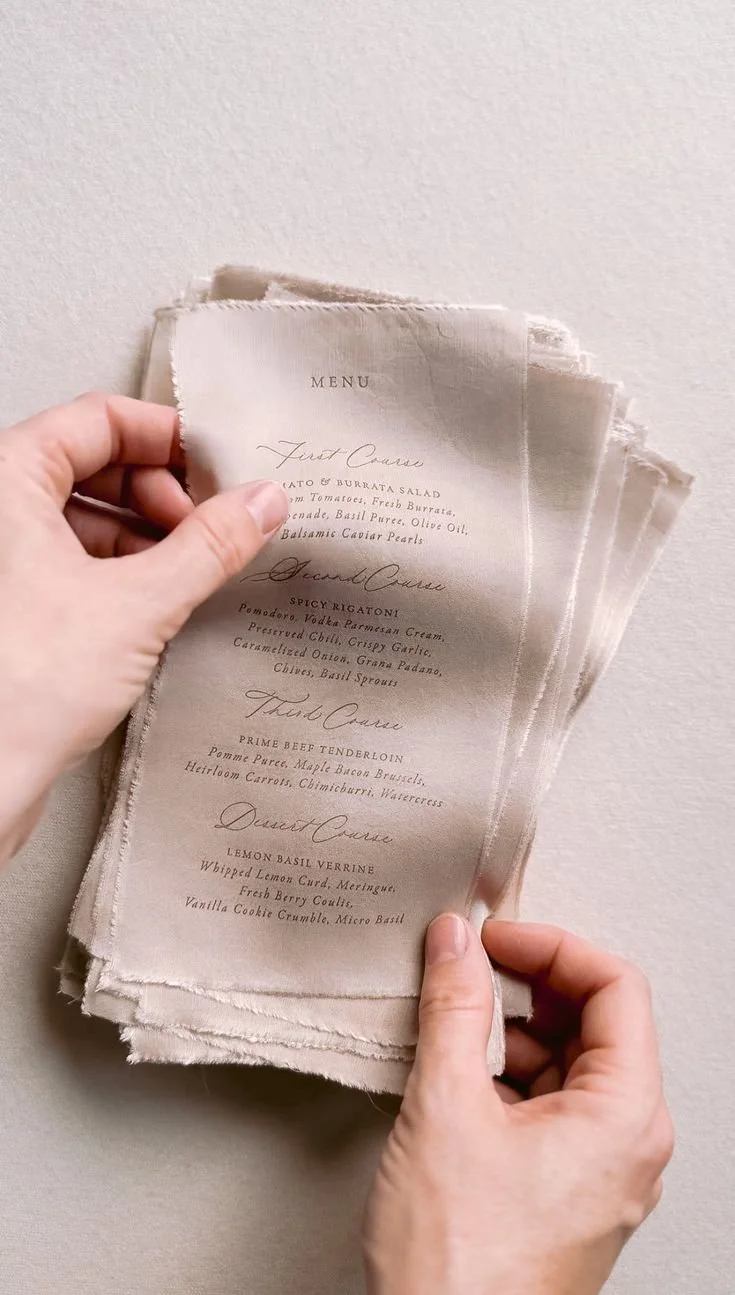 MENU
First Course
& BURRATA SALAD
Tomatoes, Fresh Burrata,
Basil Puree, Olive Oil,
Balsamic Caviar Pearls
Second Course
SPICY RIGATONI
Pomodoro, Vodka Parmesan Cream,
Preserved Chili, Crispy Garlic,
Caramelized Onion, Grana Padano,
Chives, Basil Sprouts
Third Course
PRIME BEEF TENDERLOIN
Pomme Puree, Maple Bacon Brussels,
Heirloom Carrots, Chimichurri, Watercress
Dessert Course
LEMON BASIL VERRINE
Whipped Lemon Curd, Meringue,
Fresh Berry Coulis,
Vanilla Cookie Crumble, Micro Basil